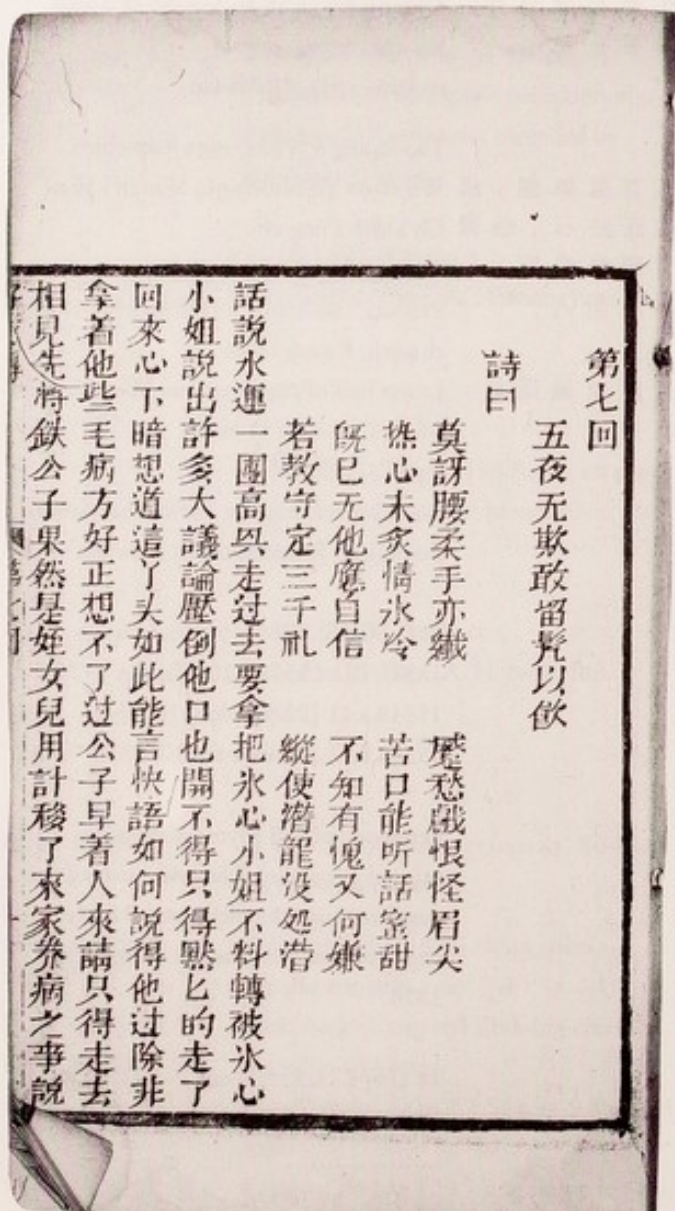 第七回
五夜无欺敢留髠以飲
詩曰
莫訝腰柔手亦纖 蹙愁戲恨怪眉尖
熱心未炙情氷冷 苦口能听話蜜甜
旣已无他應自信 不知有愧又何嫌
若教守定三千礼 縱使潜龍没処潜
話說水運一團高兴走过去要拿把氷心小姐不料轉被氷心
小姐說出許多大議論壓倒他口也開不得只得黙匕的走了
回來心下暗想道這丫头如此能言快語如何說得他过除非
拿着他些毛病方好正想不了过公子早着人來請只得走去
相見先將鉄公子果然是姪女兒用計移了來家养病之事說
第七回